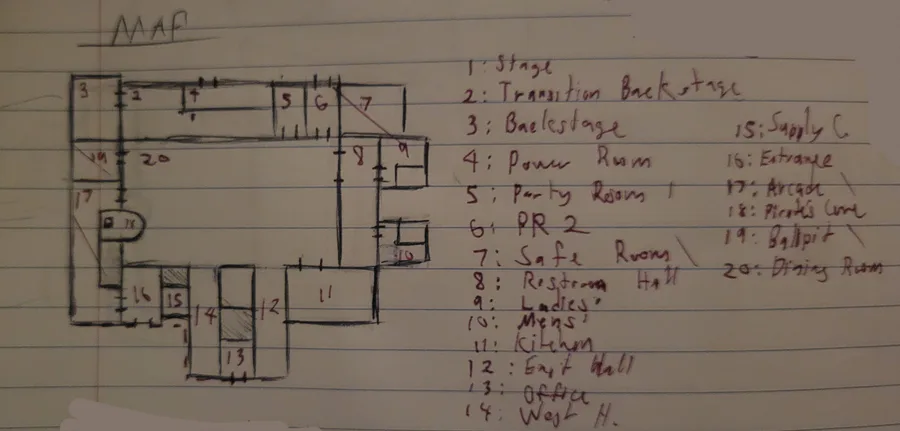 MAP
3 2 4 5 6 7
19 20 8 9
17
18
10
16 15 14 12 11
13
1: Stage
2: Transition Backstage
3: Backstage
4: Power Room
5: Party Room 1
6: PR 2
7: Safe Room \
8: Restroom Hall
9: Ladies'
10: Mens'
11: Kitchen
12: East Hall
13: Office
14: West H.
15: Supply C
16: Entrance
17: Arcade \
18: Pirate's Cove
19: Ballpit \
20: Dining Room